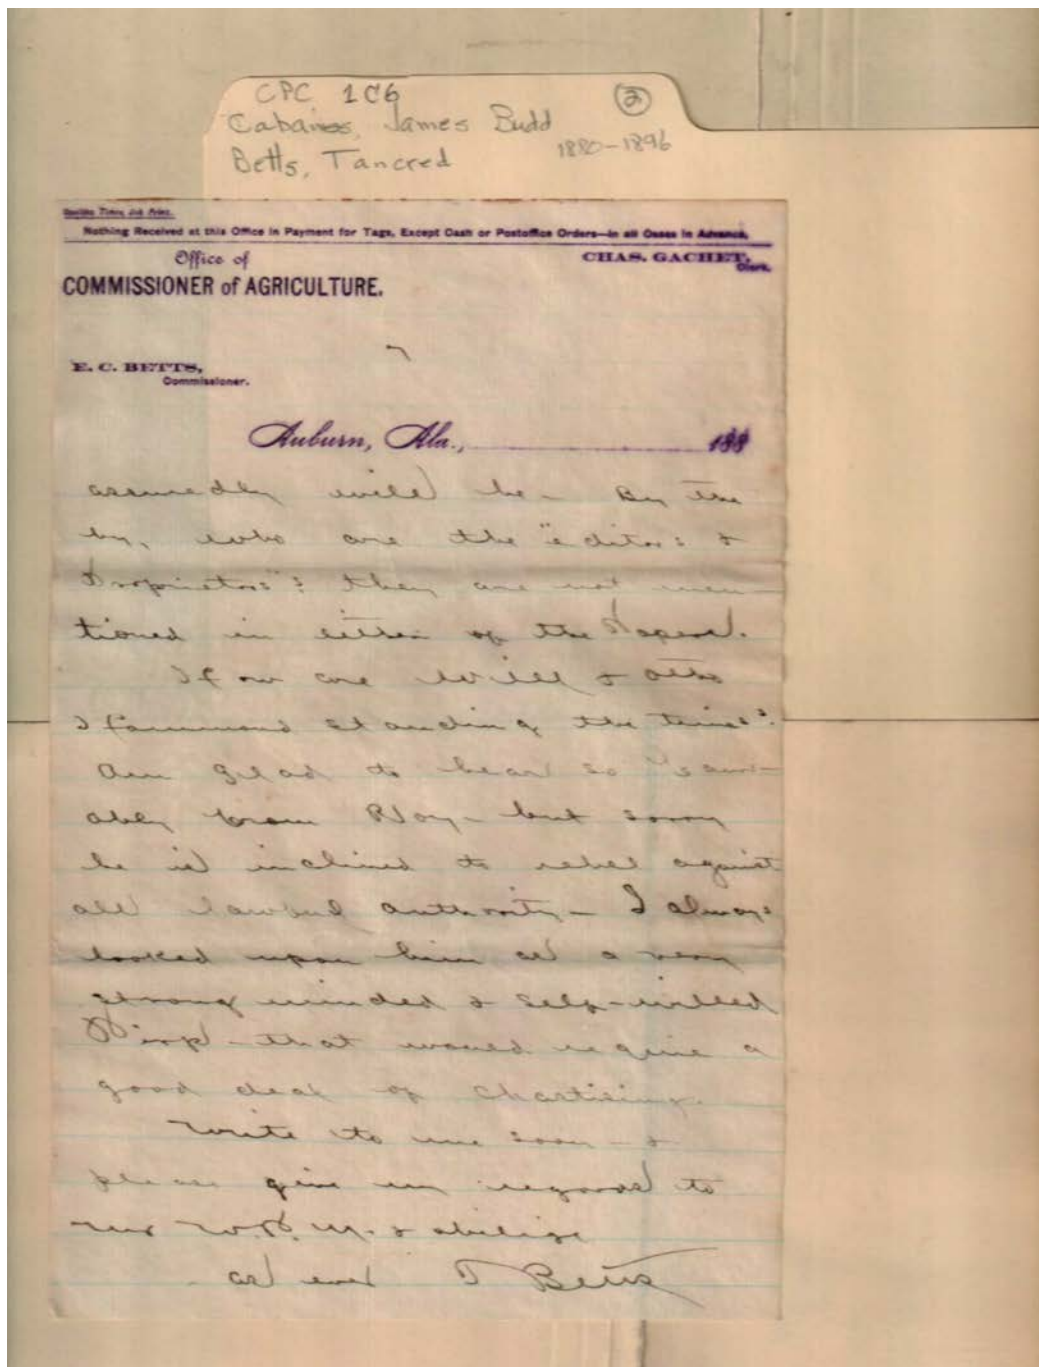 CPC 1C6
②
Cabaniss, James Budd
1880-1896
Betts, Tancred
Nothing Received at this Office in Payment for Tags, Except Cash or Postoffice Orders—in all Cases in Advance.
Office of
CHAS. GACHET,
Clerk.
COMMISSIONER of AGRICULTURE.
E. C. BETTS,
Commissioner.
Auburn, Ala., 188
assuredly will be - By the
by, who are the "editors &
Proprietors"? they are not men-
tioned in either of the Papers.
How are Will & Otho
Hammond standing the times?
Am glad to hear so
from Roy - but sorry
he is inclined to rebel against
all lawful authority - I always
looked upon him as a very
strong minded & self-willed
- that would require a
good deal of chastising.
Write to me soon - &
please give my regards to
& oblige
as ever T Betts